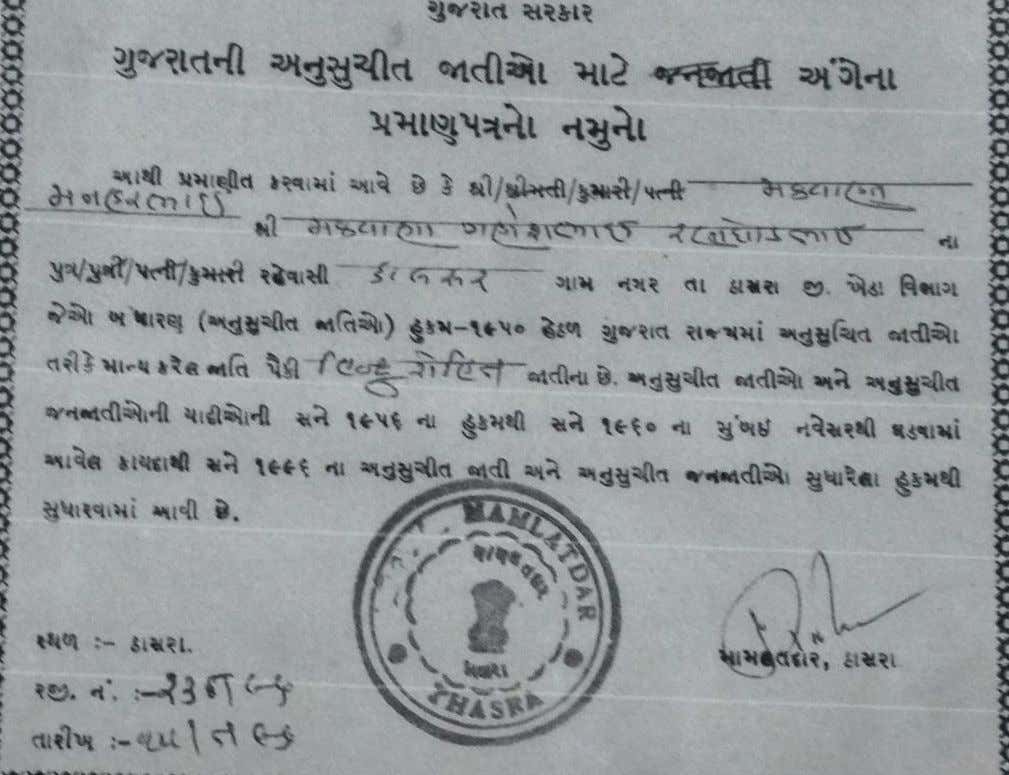 ગુજરાત સરકાર
ગુજરાતની અનુસુચીત જાતીઓ માટે જનજાતી અંગેના
પ્રમાણપત્રનો નમુનો
આથી પ્રમાણીત કરવામાં આવે છે કે શ્રી/શ્રીમતી/કુમારી/પત્ની મકવાણા
મનહરભાઇ
શ્રી મકવાણા ગણેશભાઇ રણછોડભાઇ ના
પુત્ર/પુત્રી/પત્ની/કુમારી રહેવાસી ગામ નગર તા ઠાસરા જી. ખેડા વિભાગ
જેઓ બંધારણ (અનુસુચીત જાતિઓ) હુકમ-૧૯૫૦ હેઠળ ગુજરાત રાજ્યમાં અનુસુચિત જાતીઓ
તરીકે માન્ય કરેલ જાતિ પૈકી હિન્દુ રોહિત જાતીના છે. અનુસુચીત જાતીઓ અને અનુસુચીત
જનજાતીઓની યાદીઓની સને ૧૯૫૬ ના હુકમથી સને ૧૯૬૦ ના મુંબઇ નવેસરથી ઘડવામાં
આવેલ કાયદાથી સને ૧૯૯૬ ના અનુસુચીત જાતી અને અનુસુચીત જનજાતીઓ સુધારેલા હુકમથી
સુધારવામાં આવી છે.
MAMLATDAR
મામલતદાર
ઠાસરા
THASRA
સ્થળ :- ઠાસરા.
મામલતદાર, ઠાસરા
રજી. નં. :-
તારીખ :-